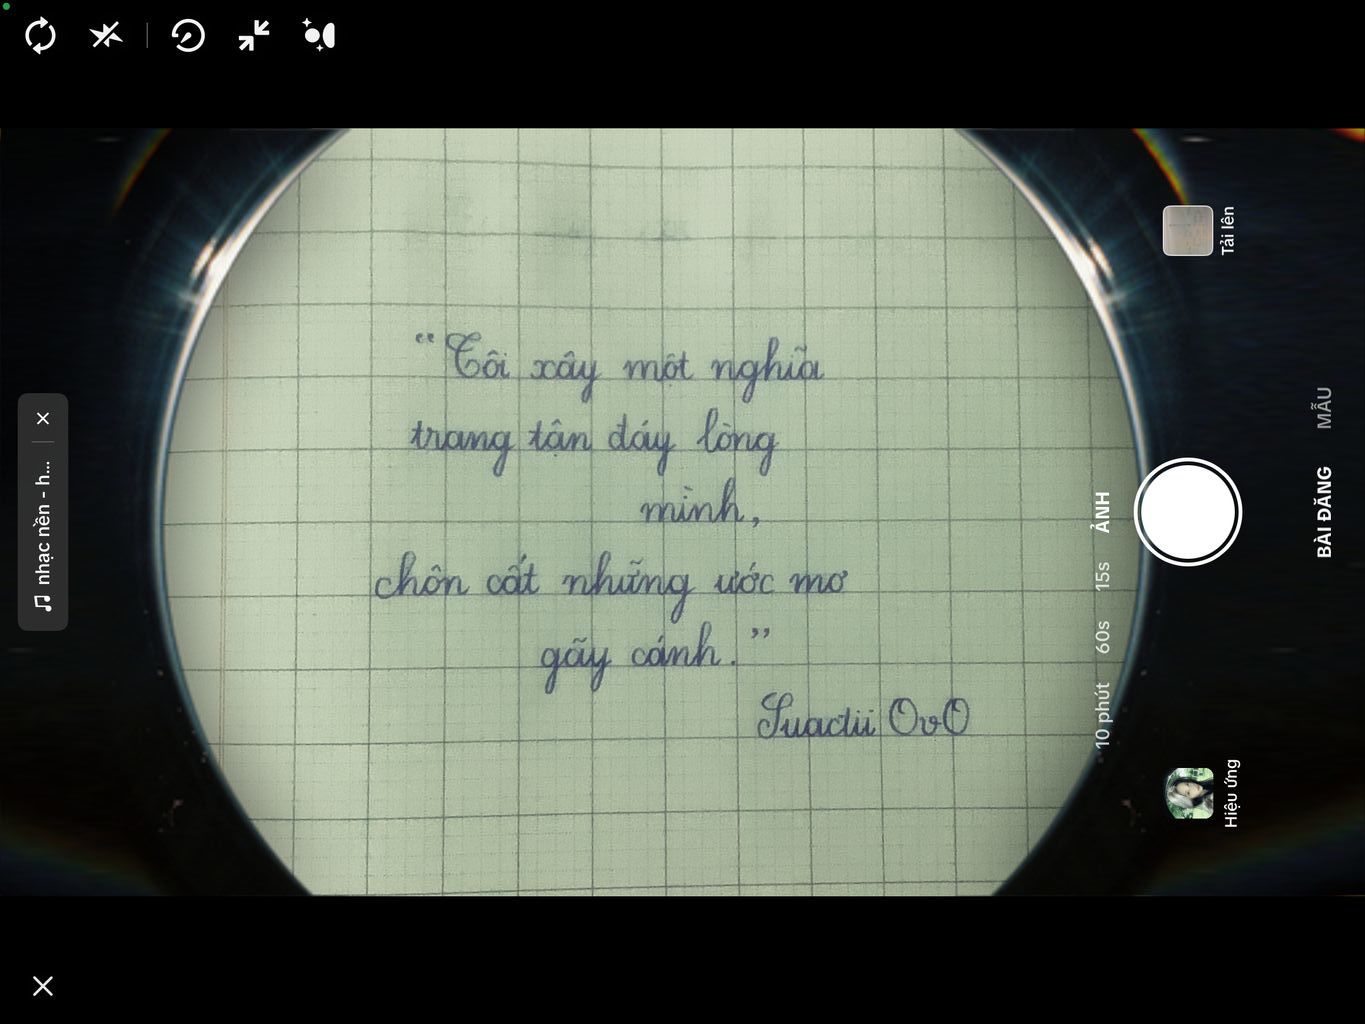 "Tôi xây một nghĩa
trang tận đáy lòng
mình,
chôn cất những ước mơ
gãy cánh."
Suactii OvO
nhạc nền - h...
Tải lên
MẪU
BÀI ĐĂNG
ẢNH
15s
60s
10 phút
Hiệu ứng